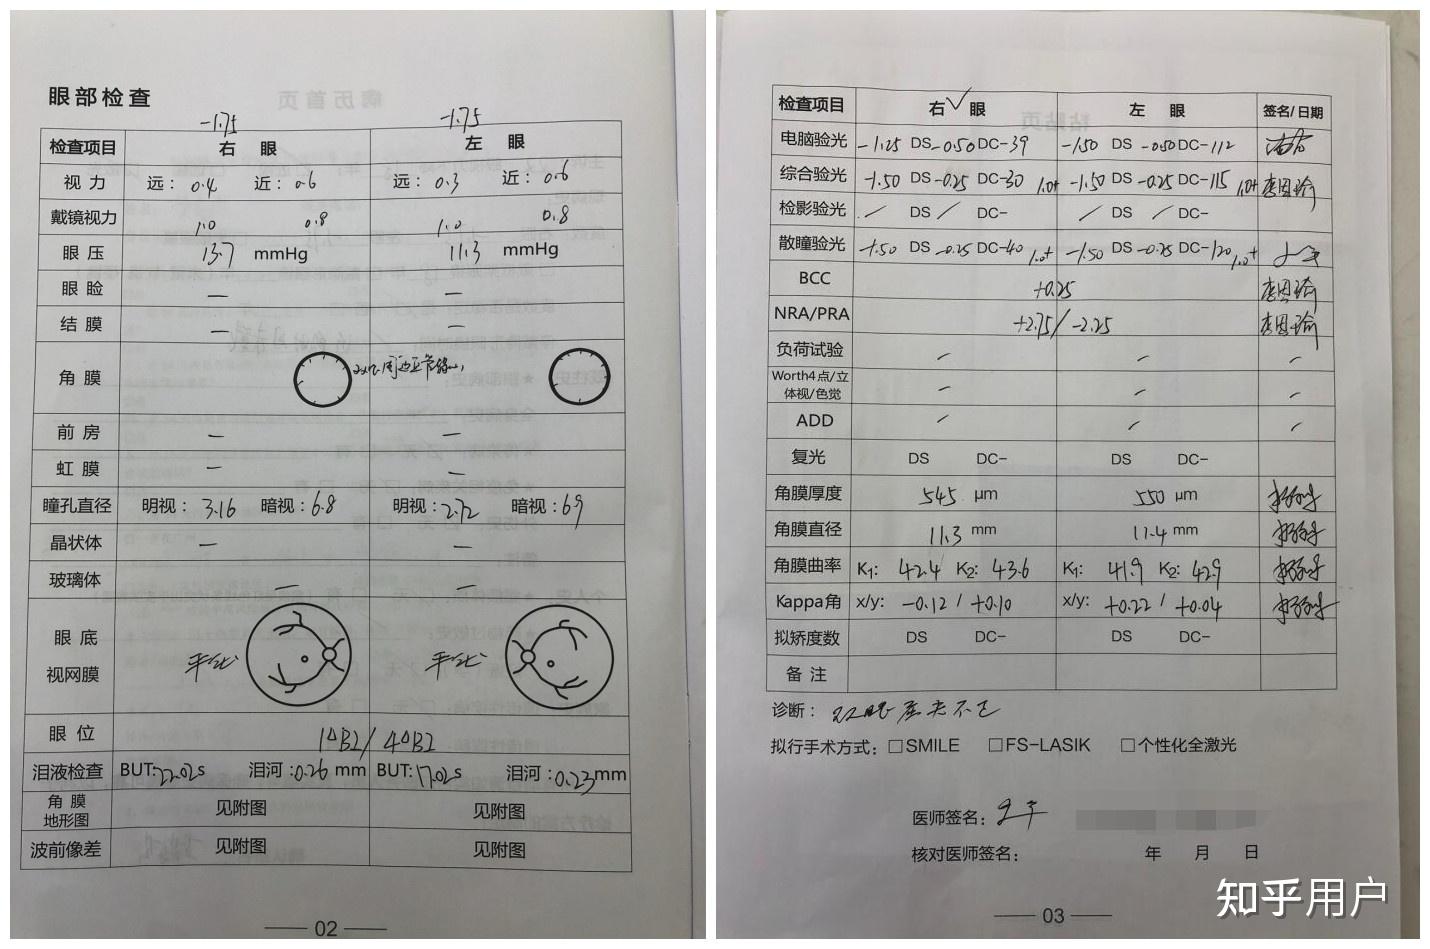 眼部检查
-1.75 -1.75
检查项目 右 眼 左 眼
视 力 远: 0.4 近: 0.6 远: 0.3 近: 0.6
戴镜视力 1.0 0.8 1.0 0.8
眼 压 13.7 mmHg 11.3 mmHg
眼 睑 — —
结 膜 — —
角 膜
前 房 — —
虹 膜 — —
瞳孔直径 明视: 3.16 暗视: 6.8 明视: 2.72 暗视: 6.9
晶状体 — —
玻璃体 — —
眼 底
视网膜
眼 位 1△BI/ 4△BI
泪液检查 BUT: 22.02s 泪河: 0.26 mm BUT: 17.02s 泪河: 0.23 mm
角 膜
地形图 见附图 见附图
波前像差 见附图 见附图
02
检查项目 右 ✓ 眼 左 眼 签名/日期
电脑验光 -1.25 DS -0.50 DC-39 -1.50 DS -0.50 DC-112
综合验光 -1.50 DS -0.25 DC-30 1.0+ -1.50 DS -0.25 DC-115 1.0+
检影验光 / DS / DC- / DS / DC-
散瞳验光 -1.50 DS -0.25 DC-40 1.0+ -1.50 DS -0.25 DC-120 1.0+
BCC +0.25
NRA/PRA +2.75/-2.25
负荷试验 / / /
Worth4点/立
体视/色觉 / / /
ADD / / /
复光 DS DC- DS DC-
角膜厚度 545 μm 550 μm
角膜直径 11.3 mm 11.4 mm
角膜曲率 K1: 42.4 K2: 43.6 K1: 41.9 K2: 42.9
Kappa角 x/y: -0.12 / +0.10 x/y: +0.22 / +0.04
拟矫度数 DS DC- DS DC-
备 注
诊断: 双眼屈光不正
拟行手术方式: □SMILE □FS-LASIK □个性化全激光
医师签名:
核对医师签名: 年 月 日
03
知乎用户